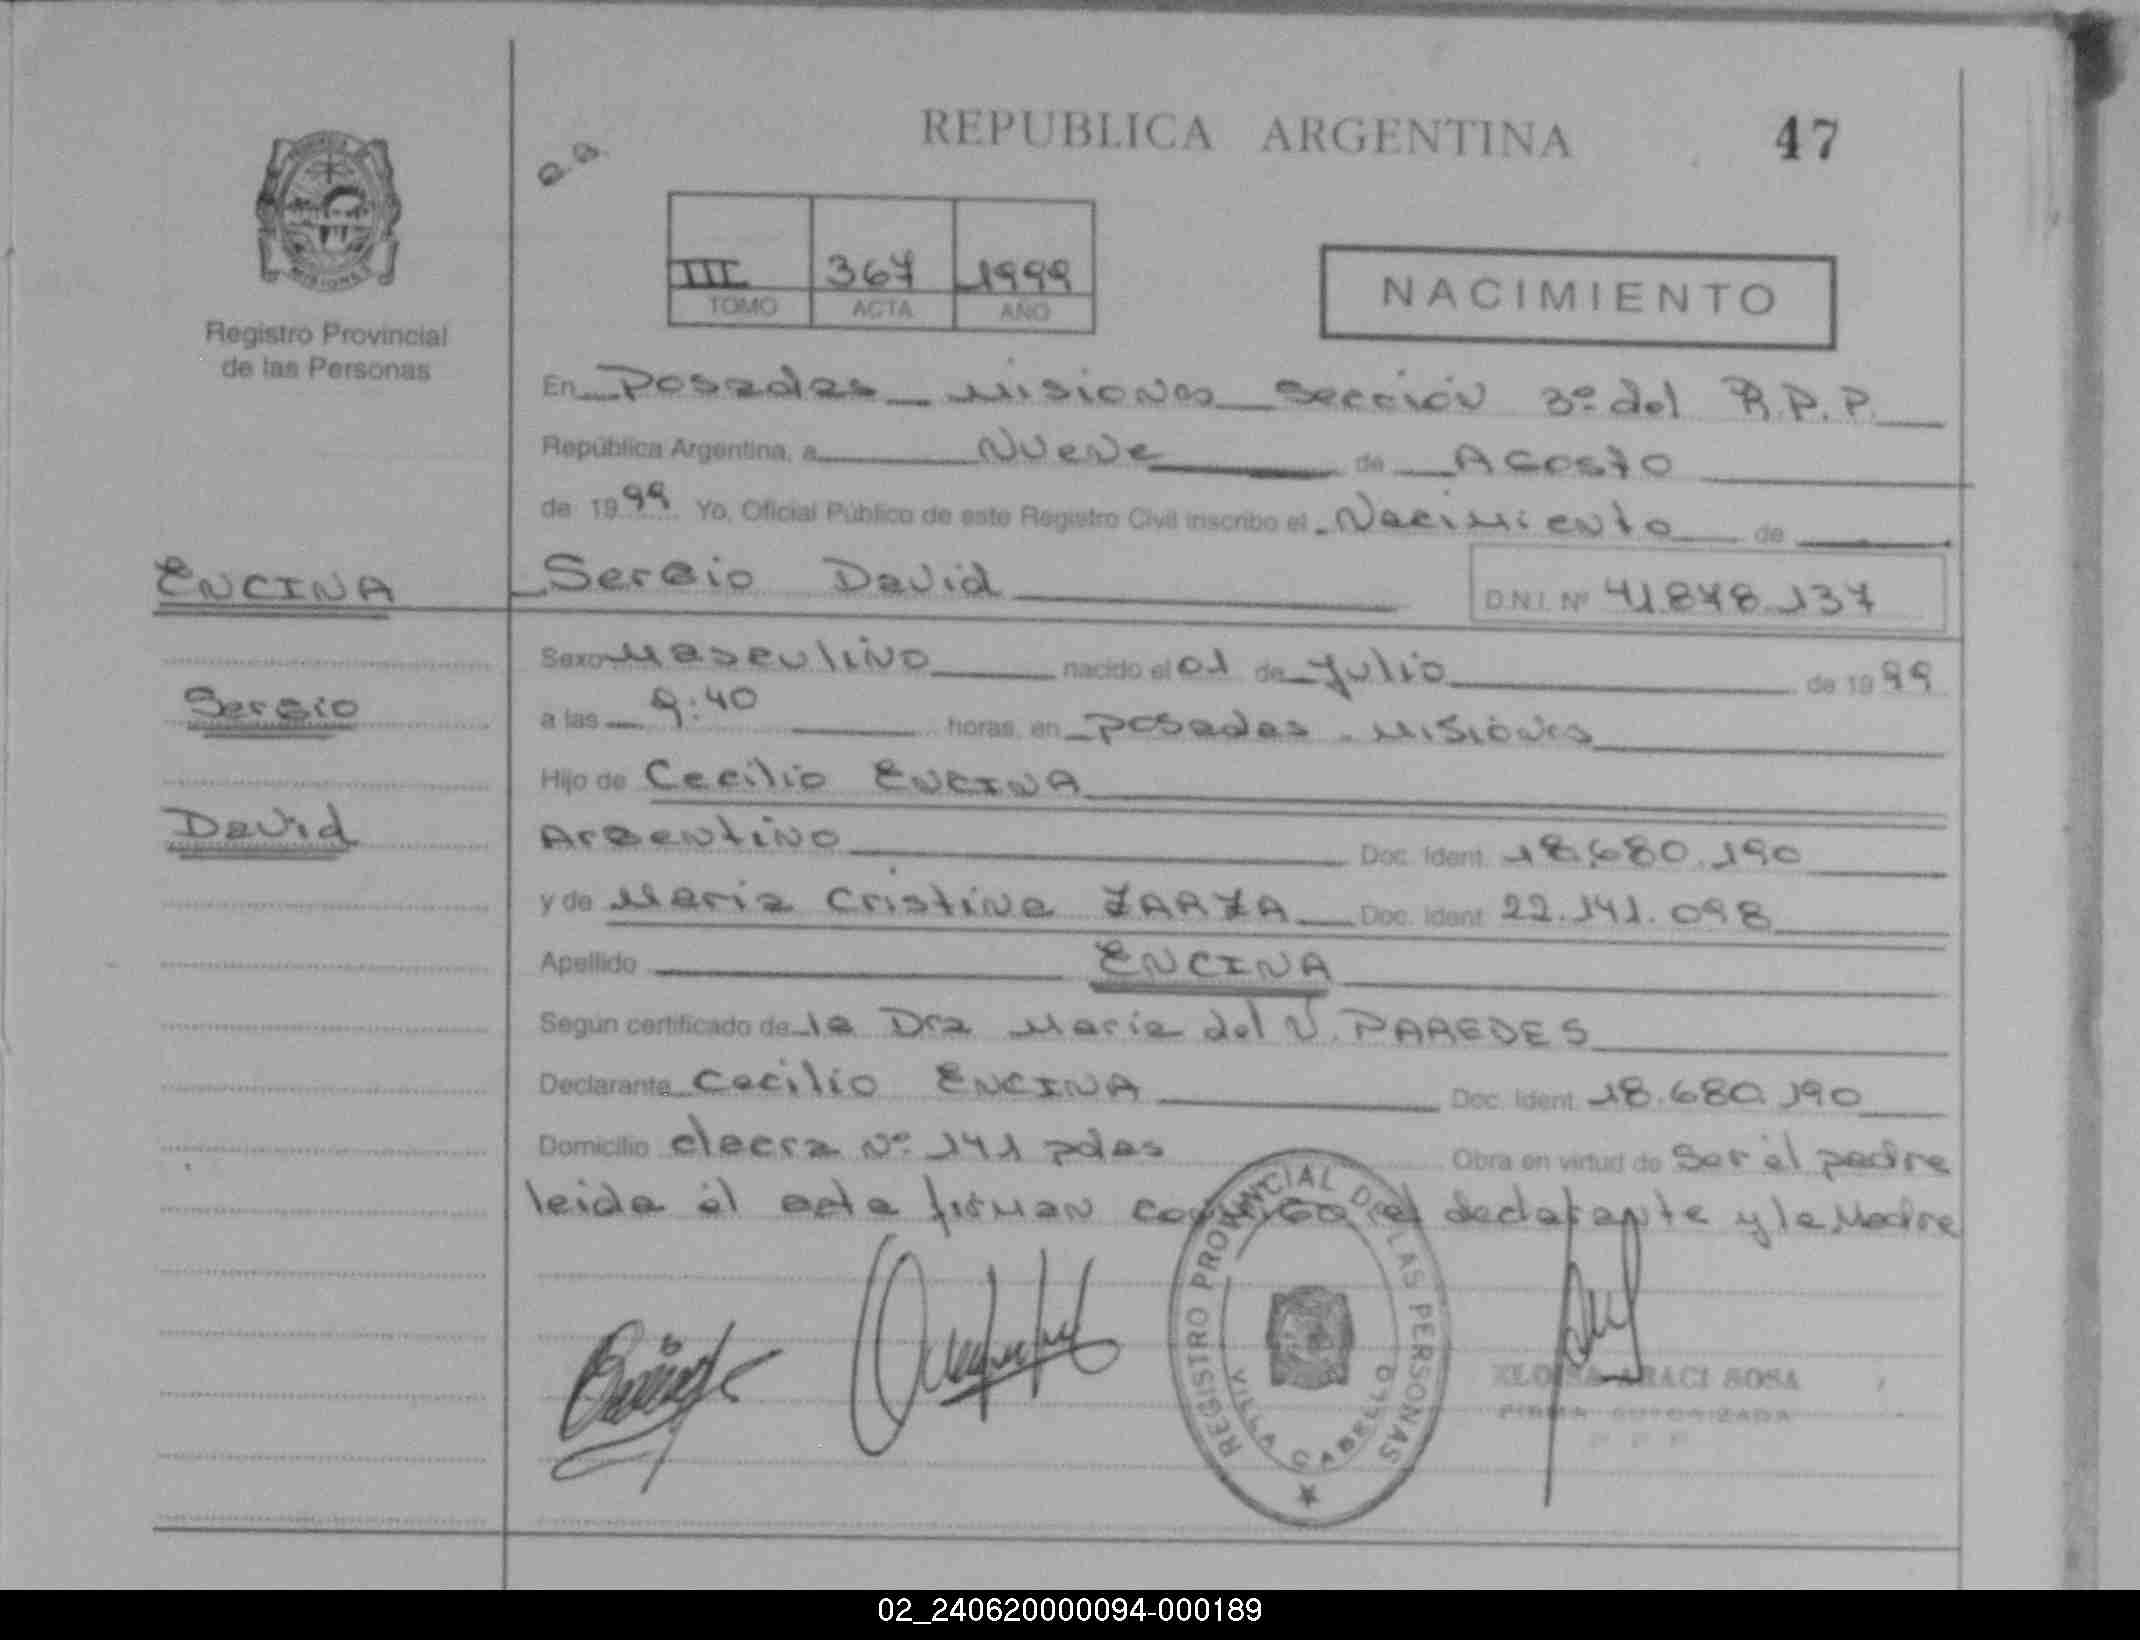 REPUBLICA ARGENTINA
47
III 367 1999
TOMO ACTA AÑO
NACIMIENTO
Registro Provincial
de las Personas
En Posadas Misiones Sección 3º del R.P.P.
República Argentina, a Nueve de Agosto
de 1999 Yo, Oficial Público de este Registro Civil inscribo el Nacimiento de
ENCINA
Sergio David D.N.I. Nº 41.878.137
Sexo Masculino nacido el 01 de Julio de 1999
Sergio
a las 9:40 horas, en Posadas - Misiones
Hijo de Cecilio ENCINA
David
Argentino Doc. Ident. 18.680.190
y de Maria Cristina ZARZA Doc. Ident. 22.141.098
Apellido ENCINA
Según certificado de la Dra Maria del V. PAREDES
Declarante Cecilio ENCINA Doc. Ident. 18.680.190
Domicilio chacra Nº 141 pdas Obra en virtud de Ser el padre
leida el acta firman conmigo el declarante y la Madre
REGISTRO PROVINCIAL DE LAS PERSONAS
VILLA CABELLO
ARACI SOSA
FIRMA AUTORIZADA
02_240620000094-000189